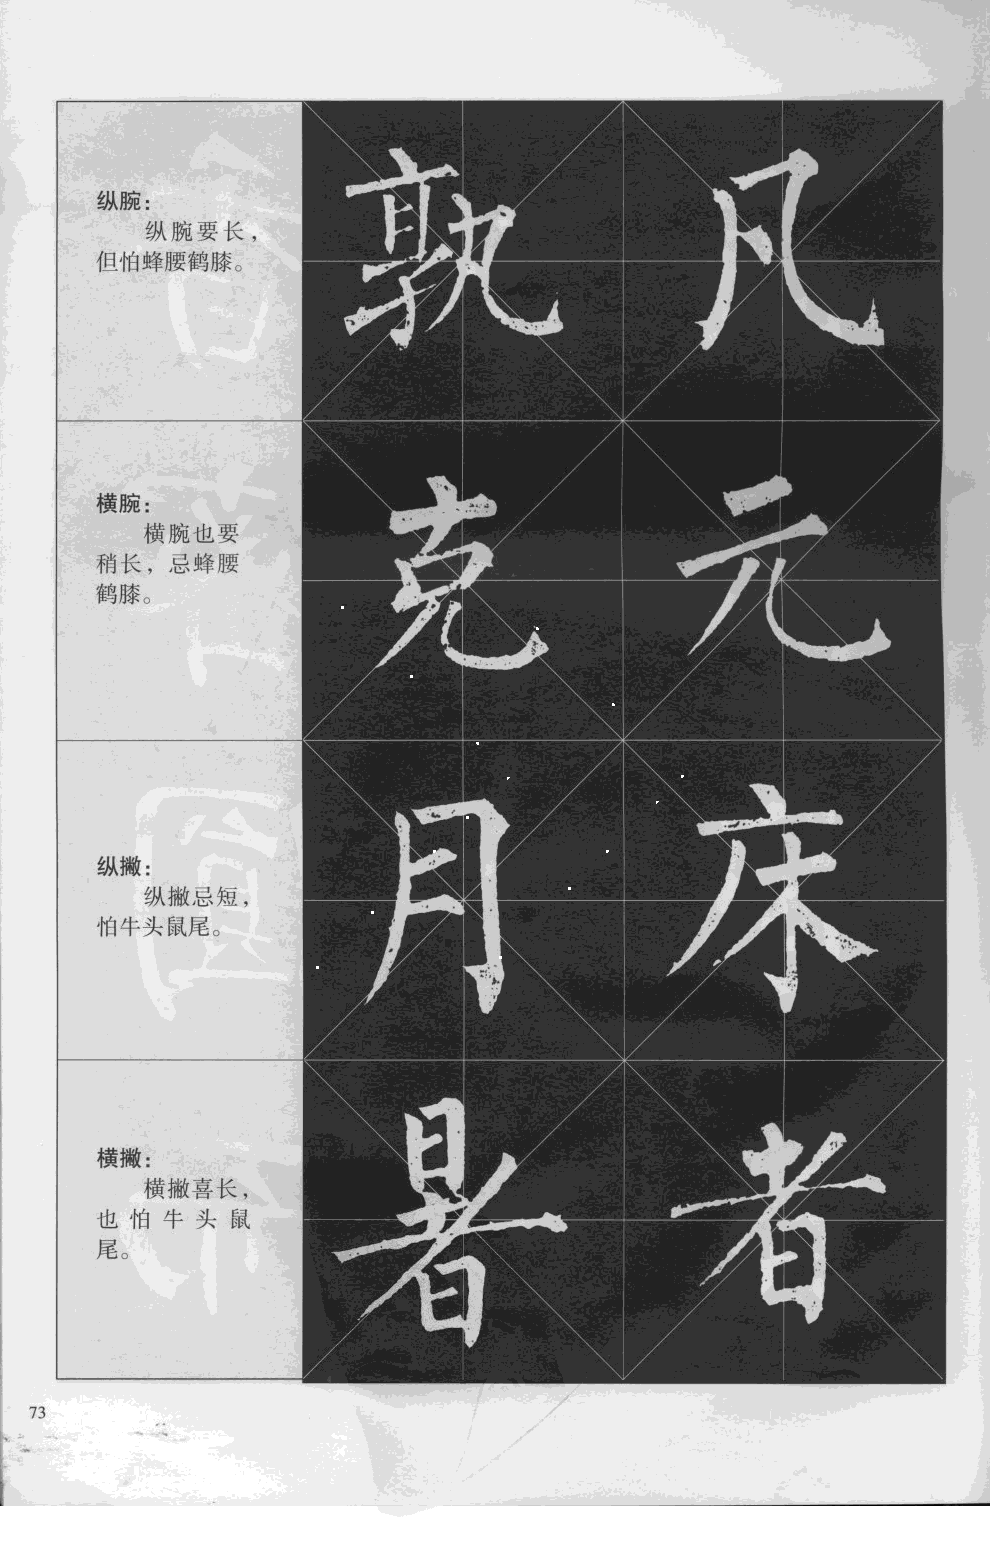 纵腕：
纵腕要长，
但怕蜂腰鹤膝。
孰 凡
横腕：
横腕也要
稍长，忌蜂腰
鹤膝。
克 元
纵撇：
纵撇忌短，
怕牛头鼠尾。
月 床
横撇：
横撇喜长，
也怕牛头鼠
尾。
暑 者
73